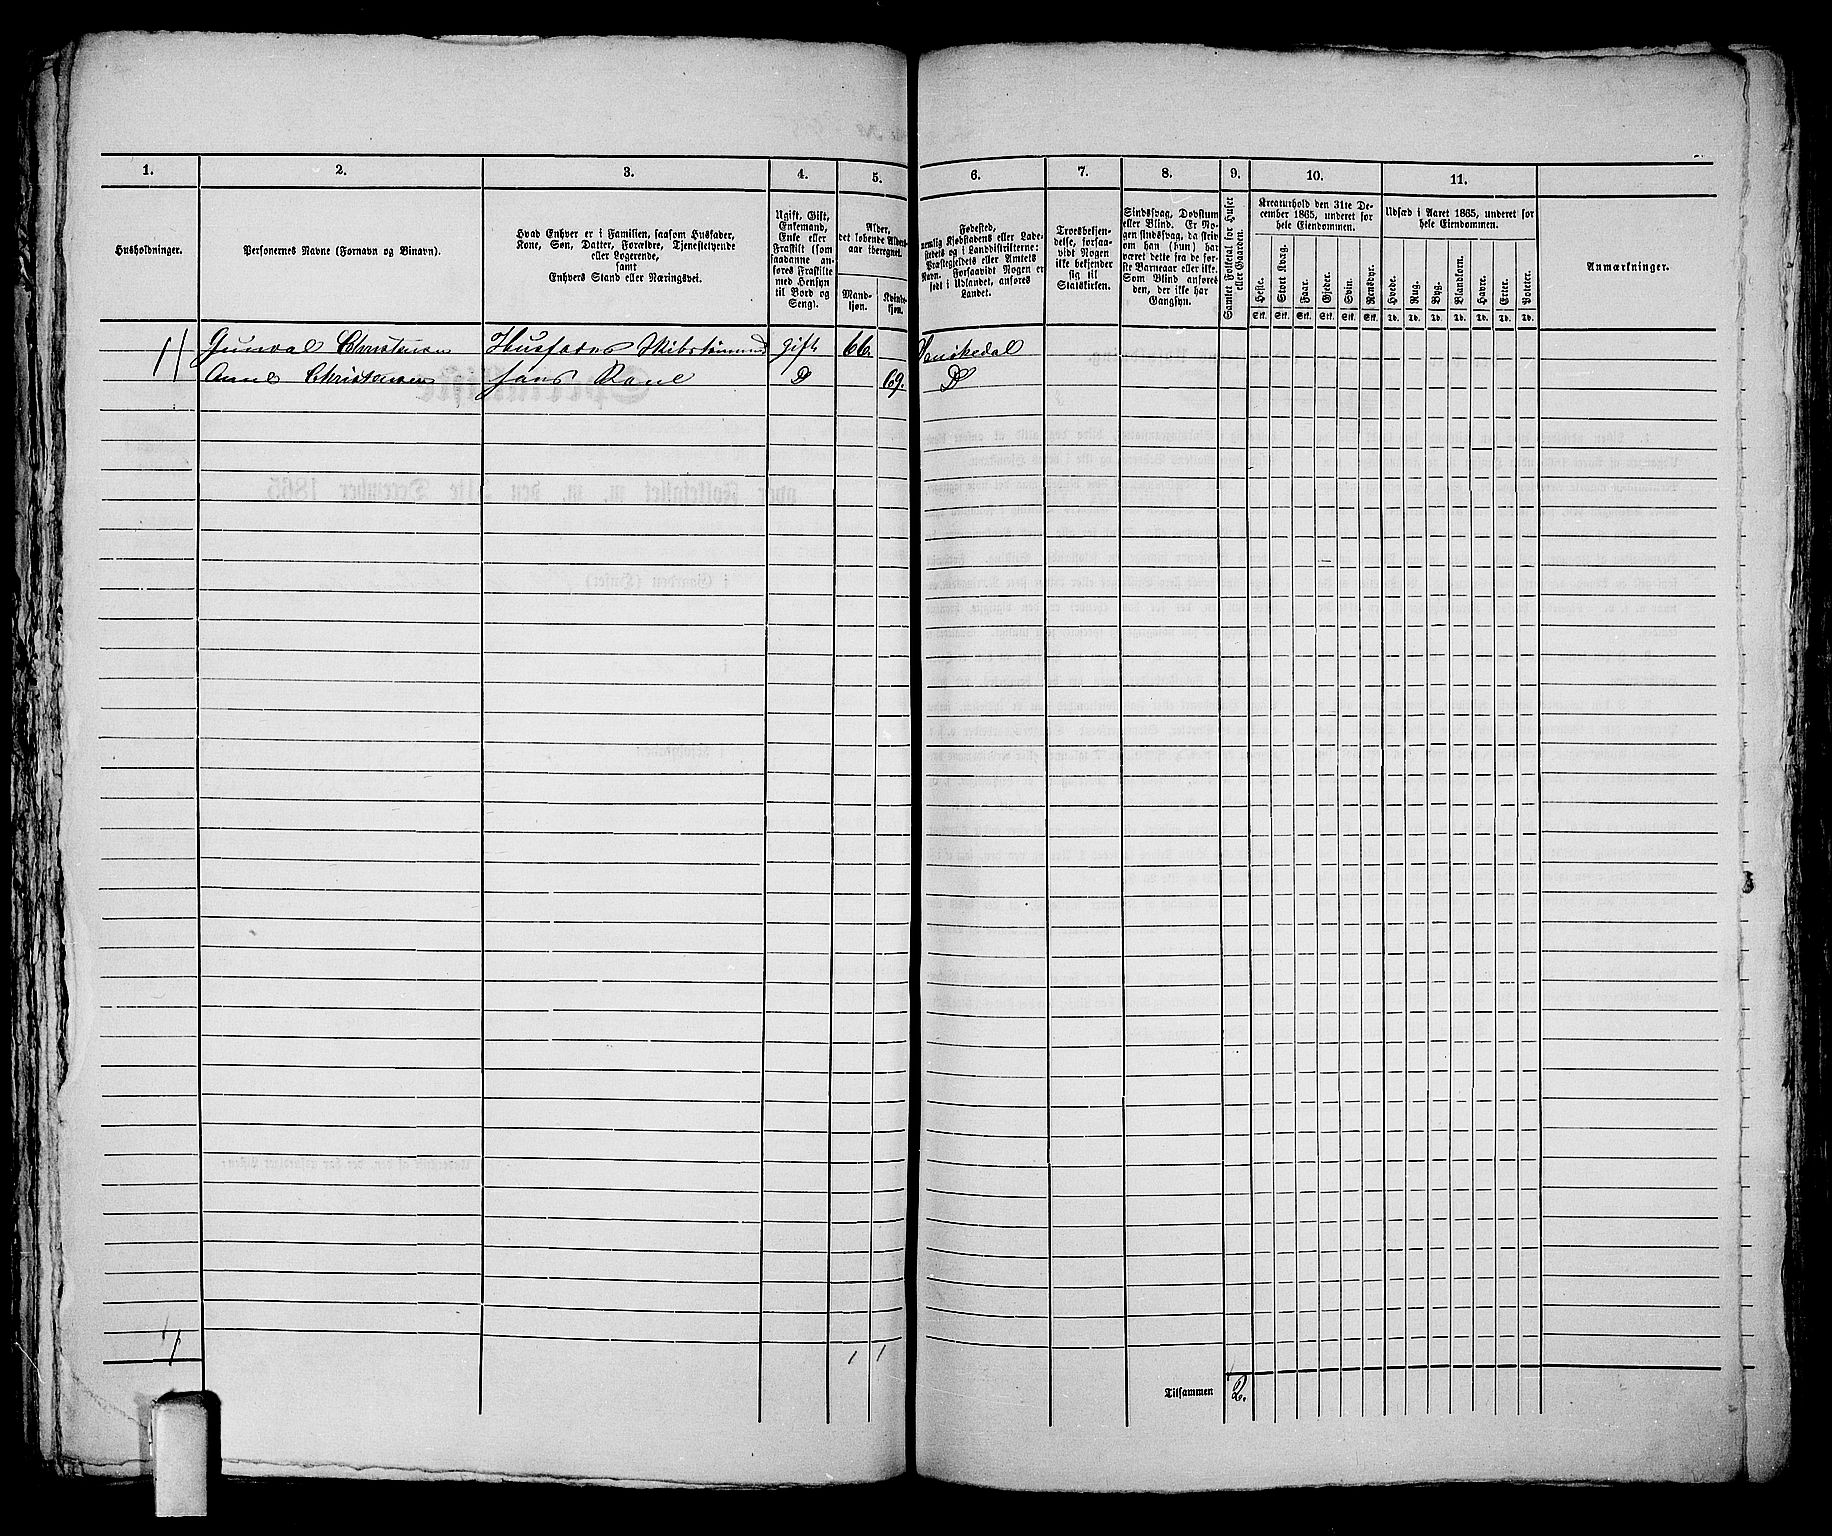 1. 2. 3. 4. 5. 6. 7. 8. 9. 10. 11.
Husholdninger.
Personernes Navne (Fornavn og Binavn).
Hvad Enhver er i Familien, saasom Husfader,
Kone, Søn, Datter, Forældre, Tjenestetyende
eller Logerende,
samt
Enhvers Stand eller Næringsvei.
Ugift, Gift,
Enkemand,
Enke eller
Fraskilt (som
saadanne an-
føres Fraskilte
med Hensyn
til Bord og
Seng).
Alder,
det løbende Alders-
aar iberegnet.
Mand-
kjøn.
Kvinde-
kjøn.
Fødested,
nemlig Kjøbstadens eller Lade-
stedets og i Landdistrikterne:
Præstegjeldets eller Amtets
Navn. Forsaavidt Nogen er
født i Udlandet, anføres
Landet.
Troesbekjen-
delse, forsaa-
vidt Nogen
ikke bekjender
sig til
Statskirken.
Sindssvag, Døvstum
eller Blind. Er No-
gen sindssvag, da skriv
om han (hun) har
været dette fra de før-
ste Barneaar eller ikke.
Som Blind anføres
den, der ikke har
Gangsyn.
Samlet Folketal for Huset
eller Gaarden.
Kreaturhold den 31te De-
cember 1865, underet for
hele Eiendommen.
Heste. Stort Kvæg. Faar. Gjeder. Svin. Rensdyr.
Stk. Stk. Stk. Stk. Stk. Stk.
Udsæd i Aaret 1865, underet for
hele Eiendommen.
Hvede. Rug. Byg. Blandkorn. Havre. Erter. Poteter.
Td. Td. Td. Td. Td. Td. Td.
Anmærkninger.
Gunval Christensen Husfader Skibstømmermd gift 66.
Anne Christensen hans Kone D 69. D
1 1
Tilsammen 2.